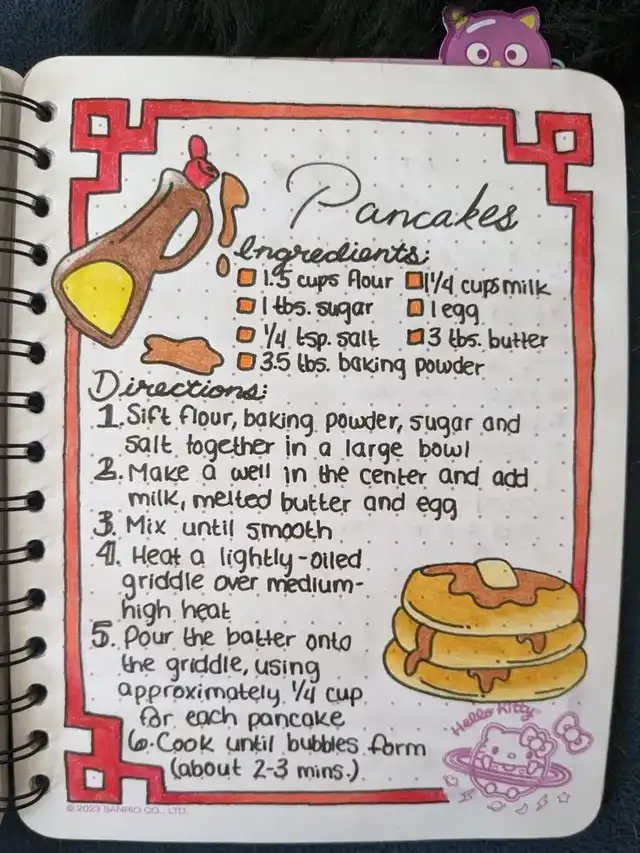 Pancakes
Ingredients:
1.5 cups flour
1 1/4 cups milk
1 tbs. sugar
1 egg
1/4 tsp. salt
3 tbs. butter
3.5 tbs. baking powder
Directions:
1. Sift flour, baking powder, sugar and
salt together in a large bowl
2. Make a well in the center and add
milk, melted butter and egg
3. Mix until smooth
4. Heat a lightly-oiled
griddle over medium-
high heat
5. Pour the batter onto
the griddle, using
approximately 1/4 cup
for each pancake
6. Cook until bubbles form
(about 2-3 mins.)
Hello Kitty
© 2023 SANRIO CO., LTD.